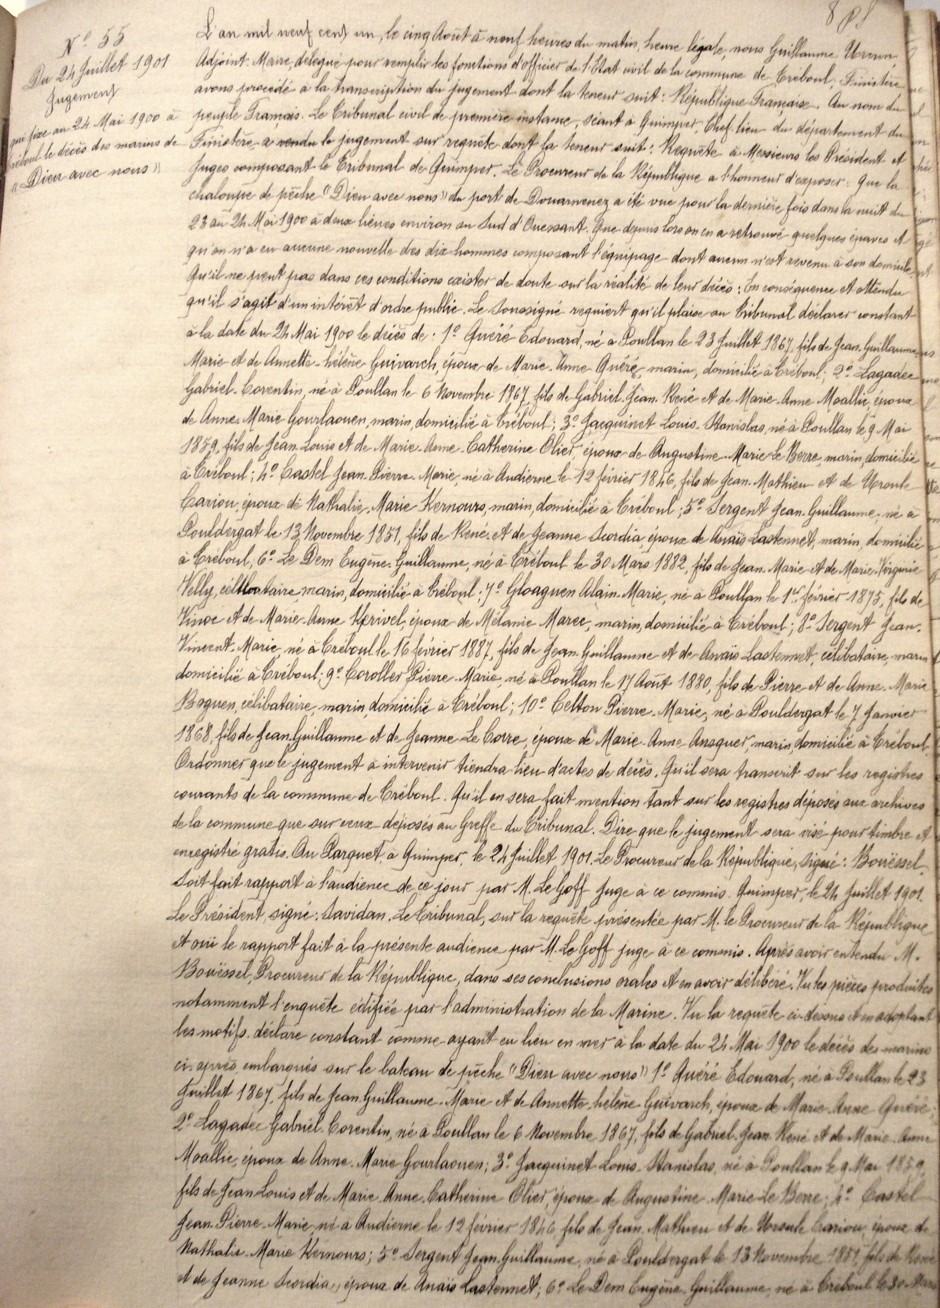 N° 55
Du 24 Juillet 1901
Jugement
qui fixe au 24 Mai 1900 à
le décès des marins de
"Dieu avec nous"
L'an mil neuf cent un, le cinq Août à neuf heures du matin, heure légale, nous Guillaume
Adjoint-Maire, délégué pour remplir les fonctions d'officier de l'Etat civil de la commune de Tréboul, Finistère,
avons procédé à la transcription du jugement dont la teneur suit: République Française. Au nom du
peuple Français. Le Tribunal civil de première instance, séant à Quimper, Chef-lieu du département du
Finistère, a rendu le jugement sur requête dont la teneur suit: Requête à Messieurs les Président et
Juges composant le Tribunal de Quimper. Le Procureur de la République a l'honneur d'exposer: Que la
chaloupe de pêche "Dieu avec nous" du port de Douarnenez a été vue pour la dernière fois dans la nuit du
23 au 24 Mai 1900 à deux lieues environ au Sud d'Ouessant. Que depuis lors on en a retrouvé quelques épaves et
qu'on n'a eu aucune nouvelle des dix hommes composant l'équipage dont aucun n'est revenu à son domicile,
Qu'il ne peut pas dans ces conditions exister de doute sur la réalité de leur décès: En conséquence et attendu
qu'il s'agit d'un intérêt d'ordre public, Le Soussigné requiert qu'il plaise au Tribunal déclarer constant
à la date du 24 Mai 1900 le décès de: 1° Quéré Edouard, né à Poullan le 23 Juillet 1867, fils de Jean Guillaume
Marie et de Annette-hélène Guivarch, époux de Marie Anne Quéré, marin, domicilié à Tréboul; 2° Lagadec
Gabriel-Corentin, né à Poullan le 6 Novembre 1867, fils de Gabriel Jean René et de Marie Anne Moallic, époux
de Anne Marie Gourlaouen, marin, domicilié à Tréboul; 3° Jacquinet Louis-Stanislas, né à Poullan le 9 Mai
1859, fils de Jean Louis et de Marie Anne Catherine Olier, époux de Augustine Marie Le Berre, marin, domicilié
à Tréboul; 4° Castel Jean Pierre Marie, né à Audierne le 12 février 1846, fils de Jean Mathieu et de Ursule
Cariou, époux de Nathalie Marie Kernours, marin, domicilié à Tréboul; 5° Sergent Jean Guillaume, né à
Pouldergat le 13 Novembre 1851, fils de René et de Jeanne Scordia, époux de Anaïs Lastennet, marin, domicilié
à Tréboul, 6° Le Dem Eugène Guillaume, né à Tréboul le 30 Mars 1882, fils de Jean Marie et de Marie Virginie
Velly, célibataire, marin, domicilié à Tréboul; 7° Gloaguen Alain Marie, né à Poullan le 1er février 1875, fils de
et de Marie Anne Kerivel, époux de Mélanie Marec, marin, domicilié à Tréboul; 8° Sergent Jean
Vincent Marie, né à Tréboul le 16 février 1887, fils de Jean Guillaume et de Anaïs Lastennet, célibataire, marin
domicilié à Tréboul; 9° Coroller Pierre Marie, né à Poullan le 17 Août 1880, fils de Pierre et de Anne Marie
célibataire, marin, domicilié à Tréboul; 10° Celton Pierre Marie, né à Pouldergat le 7 Janvier
1868, fils de Jean Guillaume et de Jeanne Le Corre, époux de Marie Anne Ansquer, marin, domicilié à Tréboul
Ordonner que le jugement à intervenir tiendra lieu d'actes de décès. Qu'il sera transcrit sur les registres
courants de la commune de Tréboul. Qu'il en sera fait mention tant sur les registres déposés aux archives
de la commune que sur ceux déposés au Greffe du Tribunal. Dire que le jugement sera visé pour timbre et
enregistré gratis. Au Parquet à Quimper, le 24 Juillet 1901. Le Procureur de la République, signé: Bouëssel.
Soit fait rapport à l'audience de ce jour par M. Le Goff Juge à ce commis. Quimper, le 24 Juillet 1901.
Le Président signé: Savidan. Le Tribunal, sur la requête présentée par M. le Procureur de la République
et ouï le rapport fait à la présente audience par M. Le Goff juge à ce commis. Après avoir entendu M.
Bouëssel, Procureur de la République, dans ses conclusions orales et en avoir délibéré. Vu les pièces produites
notamment l'enquête édifiée par l'administration de la Marine. Vu la requête ci-dessus et en adoptant
les motifs, déclare constant comme ayant eu lieu en mer à la date du 24 Mai 1900 le décès des marins
ci-après embarqués sur le bateau de pêche "Dieu avec nous" 1° Quéré Edouard, né à Poullan le 23
Juillet 1867, fils de Jean Guillaume Marie et de Annette hélène Guivarch, époux de Marie Anne Quéré;
2° Lagadec Gabriel Corentin, né à Poullan le 6 Novembre 1867, fils de Gabriel Jean René et de Marie Anne
Moallic, époux de Anne Marie Gourlaouen; 3° Jacquinet Louis Stanislas, né à Poullan le 9 Mai 1859,
fils de Jean Louis et de Marie Anne Catherine Olier, époux de Augustine Marie Le Berre; 4° Castel
Jean Pierre Marie né à Audierne le 12 février 1846 fils de Jean Mathieu et de Ursule Cariou, époux de
Nathalie Marie Kernours; 5° Sergent Jean Guillaume, né à Pouldergat le 13 Novembre 1851, fils de René
et de Jeanne Scordia, époux de Anaïs Lastennet; 6° Le Dem Eugène Guillaume, né à Tréboul le 30 Mars